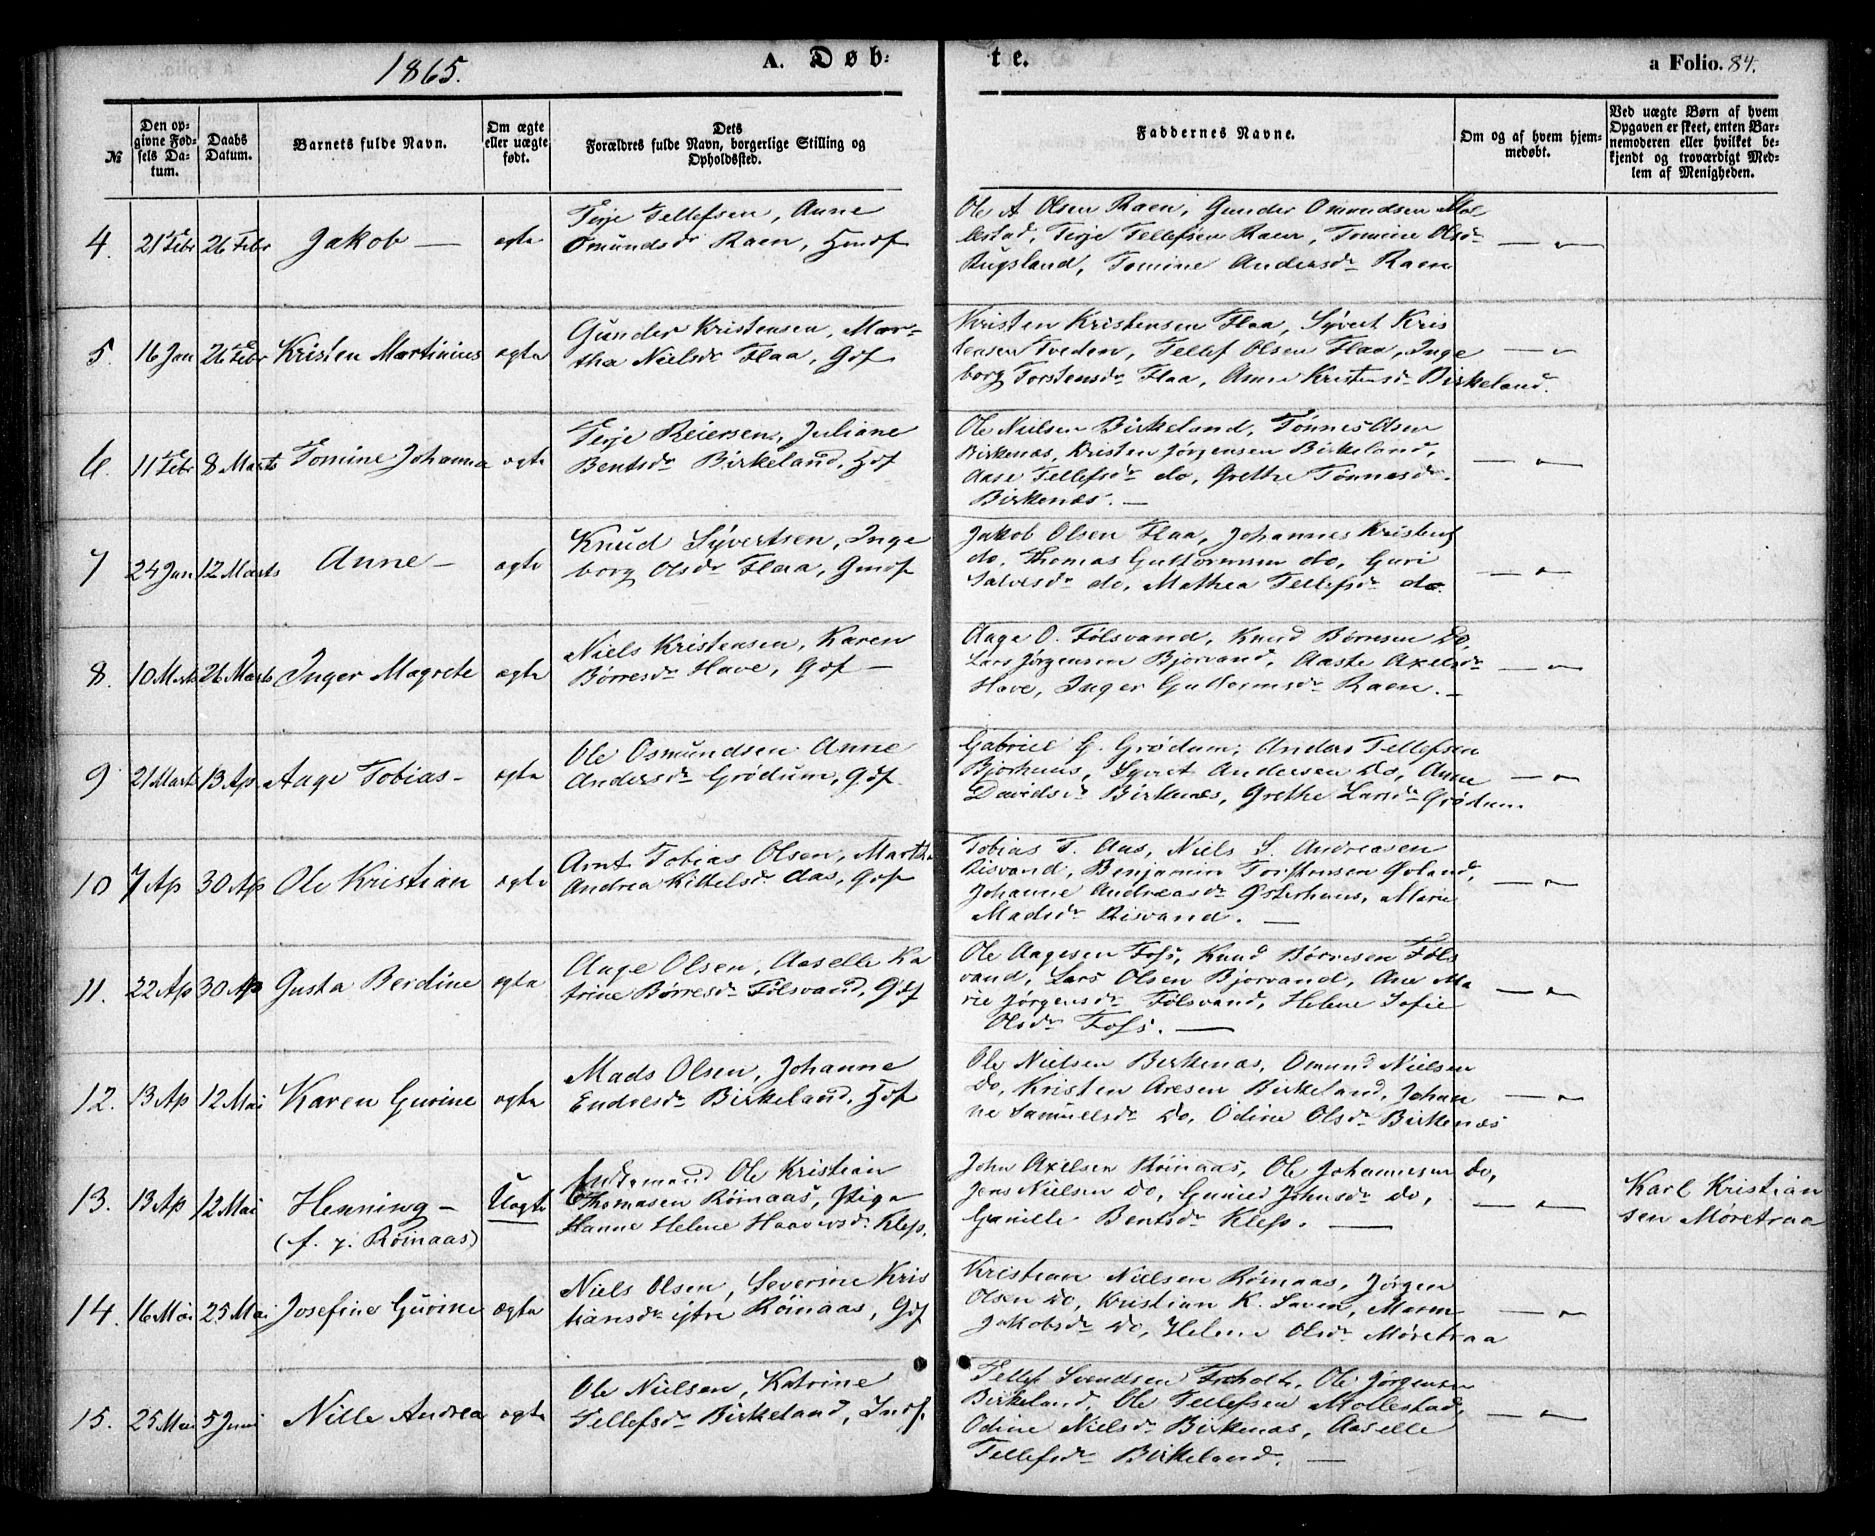 1865.
A. Døb-
te.
a Folio. 84.
№
Den opgivne Fødsels Datum.
Daabs Datum.
Barnets fulde Navn.
Om ægte eller uægte født.
Dets Forældres fulde Navn, borgerlige Stilling og Opholdssted.
Faddernes Navne.
Om og af hvem hjemmedøbt.
Ved uægte Børn af hvem Opgaven er skeet, enten Barnemoderen eller hvilket bekjendt og troværdigt Medlem af Menigheden.
4. 21 Febr 26 Febr Jakob — ægte
Terje Tellefsen, Anne
Omundsdr Raen,
Ole A Olsen Raen, Gunder Omundsen Mol-
lestad, Terje Tellefsen Raen, Tomine Olsdr
Rugsland, Tomine Andersdr Raen
— " —
5. 16 Jan 26 Febr Kristen Martinius ægte
Gunder Kristensen, Mar-
tha Nielsdr Flaa, Gdf
Kristen Kristensen Flaa, Syvert Kris
tensen Tveden, Tellef Olsen Flaa, Inge
borg Torstensdr Flaa, Anne Kristensdr Birkeland.
— " —
6. 11 Febr 8 Marts Tomine Johanna ægte
Terje Reiersen, Juliane
Bentsdr Birkeland, Hdf
Ole Nielsen Birkeland, Tønnes Olsen
Birkenæs, Kristen Jørgensen Birkeland,
Aase Tellefsdr do, Grethe Tønnesdr
Birkenæs. —
— " —
7 24 Jan 12 Marts Anne — ægte
Knud Syvertsen, Inge
borg Olsdr Flaa,
Jakob Olsen Flaa, Johannes Kristens
do, Thomas Guttormsen do, Guri
Salvesdr do, Mathea Tellefsdr do.
— " —
8. 10 Mrts 26 Marts Inger Magrete ægte
Niels Kristensen, Karen
Børresdr Have, Gdf —
Aage O. Følsvand, Knud Børresen Do,
Lars Jørgensen Bjorvand, Aaste Axelsdr
Have, Inger Guttormsdr Raen. —
— " —
9 21 Marts 13 Ap. Aage Tobias — ægte
Ole Osmundsen Anne
Andersdr Grødum, Gdf.
Gabriel G. Grødum, Anders Tellefsen
Bjorhuus, Syvert Andersen Do, Anne
Davidsdr Birknæs, Grethe Larsdr Grødum.
— " —
10 7 Ap 30 Ap Ole Kristian ægte
Arnt Tobias Olsen, Martha
Andrea Kittelsdr Aas, Gdf
Tobias T. Aas, Niels S. Andreasen
Risvand, Benjamin Torstensen Øvland,
Johanne Andreasdr Østerhuus, Marie
Madsdr Risvand. —
— " —
11. 22 Ap 30 Ap Gusta Berdine ægte
Aage Olsen, Aaselle Ka
trine Børresdr Følsvand, Gdf
Ole Aagesen Foss, Knud Børresen Føls
vand, Lars Olsen Bjorvand, Ane Ma
rie Jørgensdr Følsvand, Helene Sofie
Olsdr Foss. —
— " —
12. 13 Ap 12 Mai Karen Gurine ægte
Mads Olsen, Johanne
Endresdr Birkeland, Hdf
Ole Nielsen Birkenæs, Omund Nielsen
Do, Kristen Aresen Birkeland, Johan
ne Samuelsdr Do, Odine Olsdr Birkenæs
— " —
13. 13 Ap 12 Mai Henning — Uægte
(f. p. Røinaas)
Ole Kristian
Thomasen Røinaas, Pige
Hanne Helene Haaversdr Klep.
John Axelsen Røinaas, Ole Johannesen Do,
Jens Nielsen Do, Gunild Johnsdr Do,
Gunille Bentsdr Klep. —
— " —
Karl Kristian
sen Møretraa
14. 16 Mai 25 Mai Josefine Gurine ægte
Niels Olsen, Severine Kris
tiansdr ytre Røinaas, Gdf
Kristian Nielsen Røinaas, Jørgen
Olsen Do, Kristian K. Saven, Maren
Jakobsdr Do, Helene Olsdr Møretraa
— " —
15. 25 Mai 5 Juni Nille Andrea ægte
Ole Nielsen, Katrine
Tellefsdr Birkeland,
Tellef Svendsen Froholt, Ole Jørgensen
Birkeland, Ole Tellefsen Mollestad,
Odine Nielsdr Birkenæs, Aaselle
Tellefsdr Birkeland. —
— " —